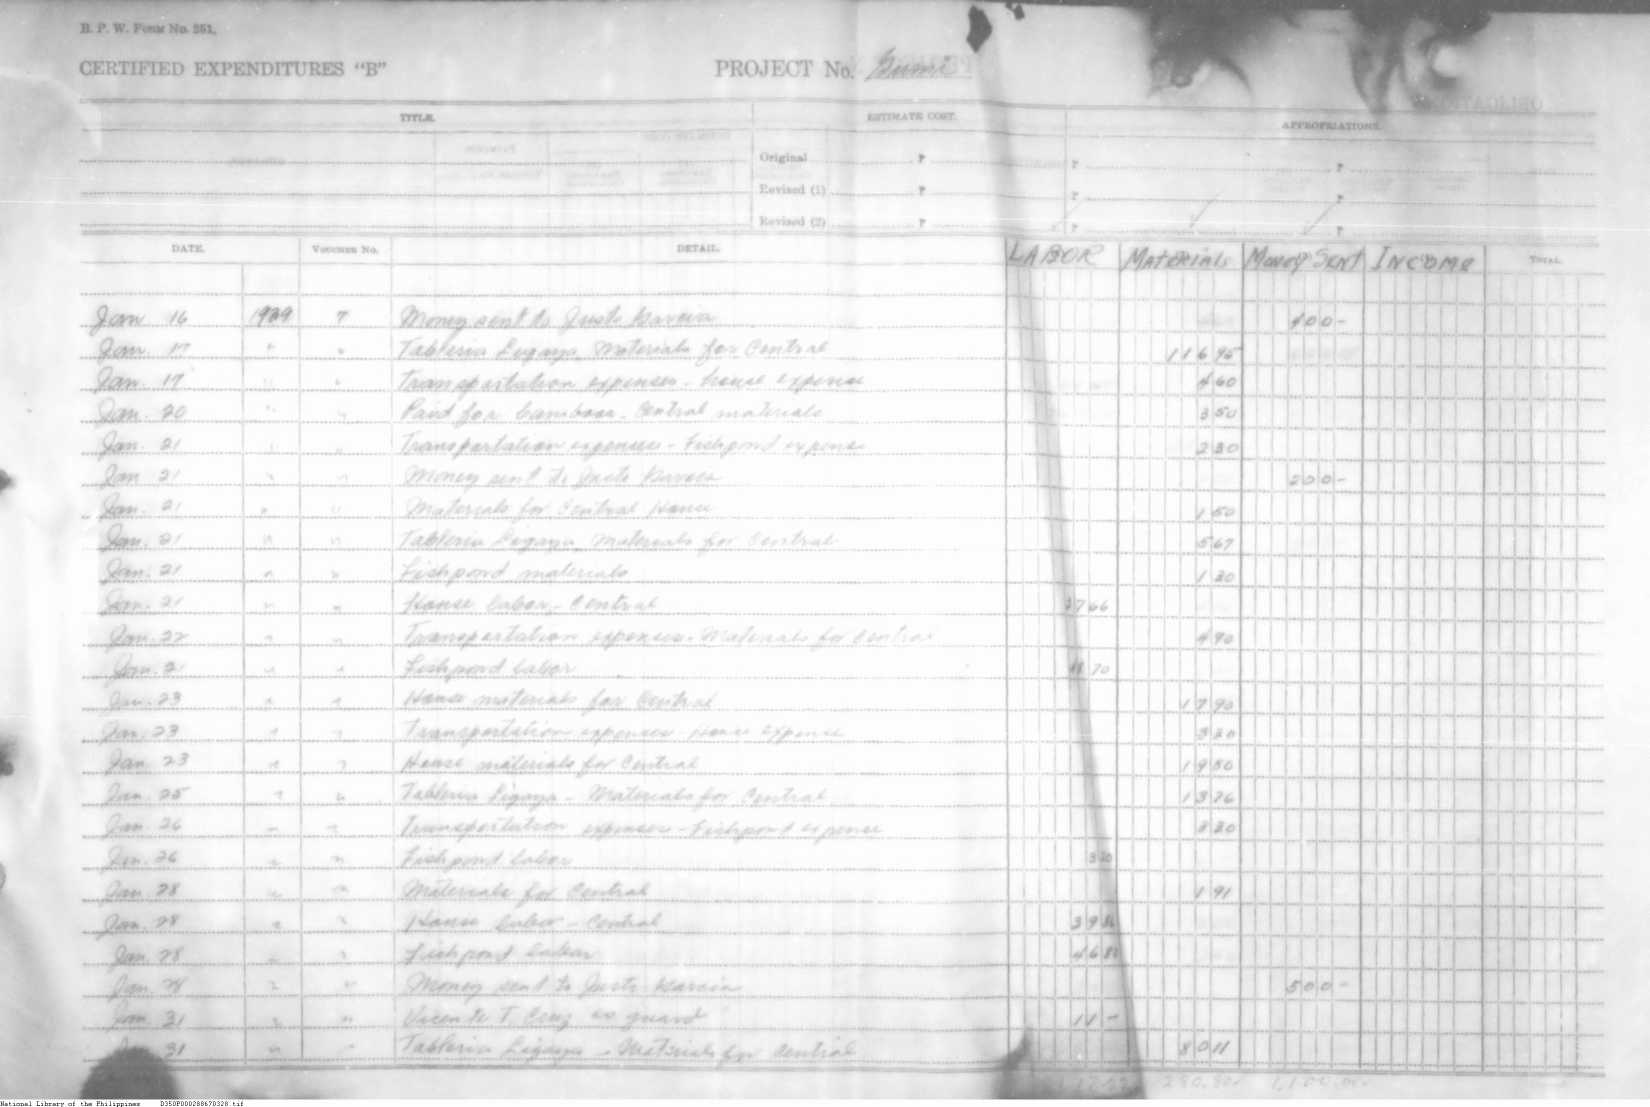 B. P. W. Form No. 251.
CERTIFIED EXPENDITURES "B" PROJECT No.
TITLE. ESTIMATE COST. APPROPRIATIONS.
Original ₱ ₱ ₱
Revised (1) ₱ ₱ ₱
Revised (2) ₱ ₱
DATE. VOUCHER No. DETAIL. LABOR Materials Money Sent INCOME TOTAL
Jan 16 1929 " Money sent to Justo Garcia 400-
Jan. 17 " " Tableria Ligaya, Materials for Central 116 95
Jan. 17 " " Transportation expenses - house expense 4 60
Jan. 20 " " Paid for bamboos - Central materials 3 50
Jan. 21 " " Transportation expenses - Fishpond expense 2 30
Jan 21 " " Money sent to Justo Garcia 200-
Jan. 21 " " Materials for Central House 1 50
Jan. 21 " " Tableria Ligaya, Materials for Central 5 67
Jan. 21 " " Fishpond materials 1 20
Jan. 21 " " House labor - Central 7 66
Jan. 22 " " Transportation expenses - Materials for Central 4 90
Jan. 21 " " Fishpond labor 70
Jan. 23 " " House materials for Central 17 90
Jan. 23 " " Transportation expenses - House Expense 3 20
Jan. 23 " " House materials for Central 19 50
Jan. 25 " " Tableria Ligaya - Materials for Central 13 76
Jan. 26 " " Transportation expenses - Fishpond expense 20
Jan. 26 " " Fishpond labor 3 20
Jan. 28 " " Materials for Central 1 91
Jan. 28 " " House labor - Central 39
Jan. 28 " " Fishpond labor 46
Jan. 28 " " Money sent to Justo Garcia 500-
Jan. 31 " " Vicente T. Cruz as guard 11 -
31 " " Tableria Ligaya - Materials for Central 80 11
1,100.00
National Library of the Philippines D350P000288670328.tif